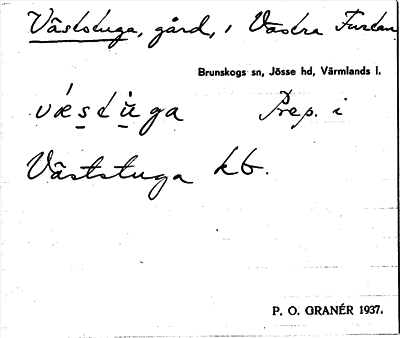 Väststuga, gård, i Västra Furtan
Brunskogs sn, Jösse hd, Värmlands l.
Prep. i
Väststuga kb.
P. O. GRANÉR 1937.